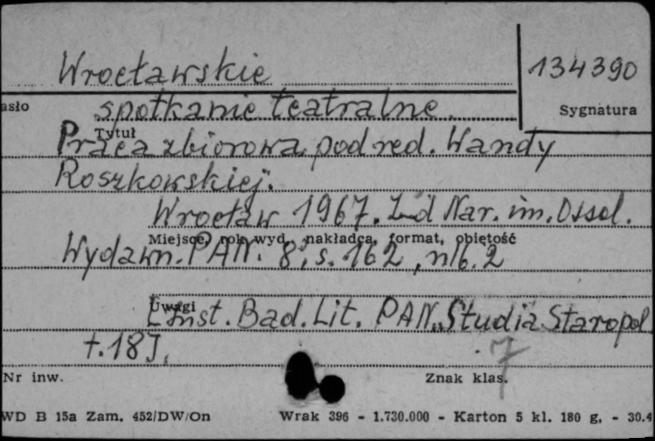 Wrocławskie 134390
asło spotkanie teatralne. Sygnatura
Tytuł
Praca zbiorowa pod red. Wandy
Roszkowskiej.
Wrocław 1967. Zd Nar. im. Ossol.
Miejsce, rok wyd., nakładca, format, objętość
Wydawn. PAN. 8°, s. 162, nlb. 2
Uwagi
[Inst. Bad. Lit. PAN. „Studia Staropol
t. 18].
7
Nr inw. Znak klas.
WD B 15a Zam. 452/DW/On Wrak 396 - 1.730.000 - Karton 5 kl. 180 g. - 30.4